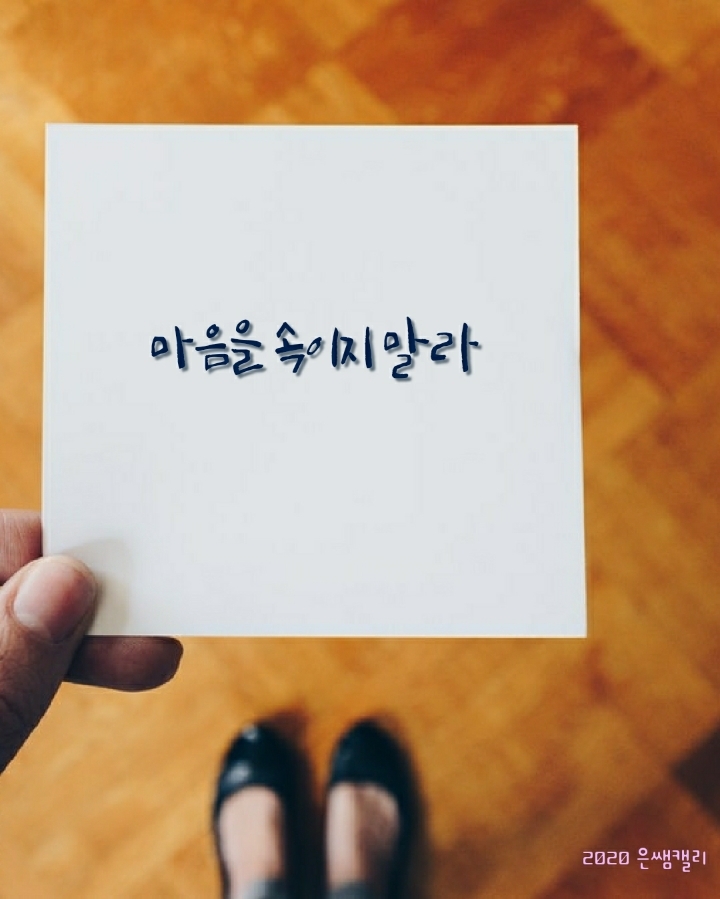 마음을 속이지 말라
2020 은쌤캘리